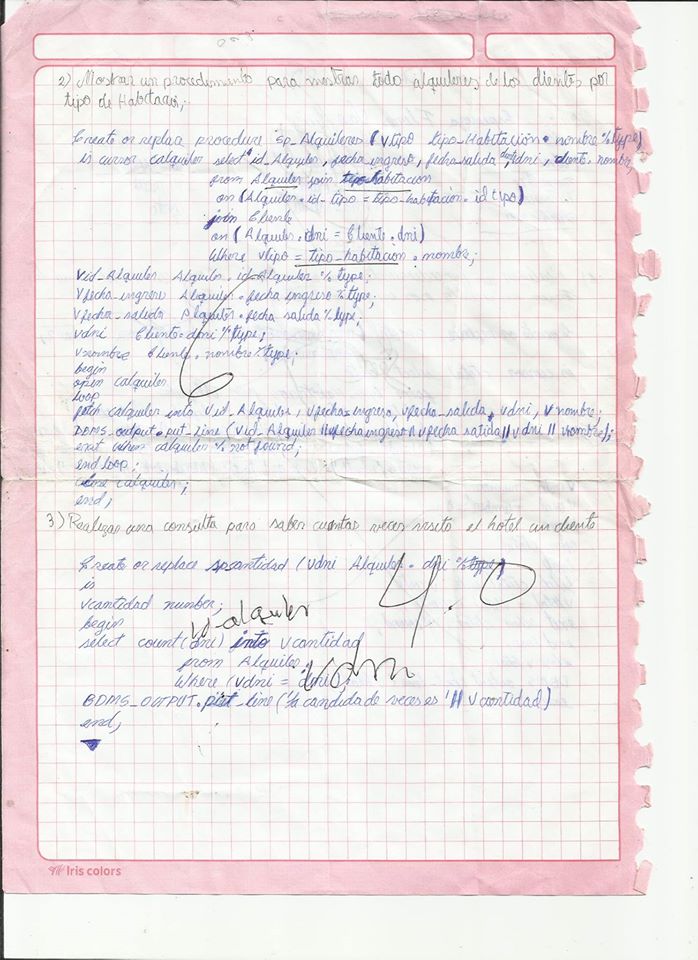 2) Mostrar un procedimiento para mostrar todo alquileres de los clientes por
tipo de Habitacion;
Create or replace procedure sp_Alquileres (vtipo tipo_Habitación.nombre%type)
is cursor calquiler select id_Alquiler, fecha_ingreso, fecha_salida, dni, cliente.nombre
from Alquiler join tipo_habitacion
on (Alquiler.id_tipo = tipo_habitacion.idtipo)
join Cliente
on (Alquiler.dni = Cliente.dni)
Where vtipo = tipo_habitacion.nombre;
vid_Alquiler Alquiler.id_Alquiler%type;
Vfecha_ingreso Alquiler.fecha ingreso%type;
Vfecha_salida Alquiler.fecha salida%type;
vdni Cliente.dni%type;
vnombre Cliente.nombre%type;
begin
open calquiler
Loop
fetch calquiler into vid_Alquiler, vfecha_ingreso, vfecha_salida, vdni, vnombre;
DBMS_output.put_line (vid_Alquiler||vfecha ingreso||vfecha salida||vdni||vnombre);
exit when calquiler%notfound;
end loop;
close calquiler;
end;
6
3) Realizar una consulta para saber cuantas veces visito el hotel un cliente
Create or replace spcantidad (vdni Alquiler.dni%type)
is
vcantidad number;
begin
4.0
id_alquiler
select count(dni) into vcantidad
from Alquiler
Where (vdni = dni);
BDMS_OUTPUT.put_line ('la candida de veces es '||Vcantidad)
end;
Iris colors